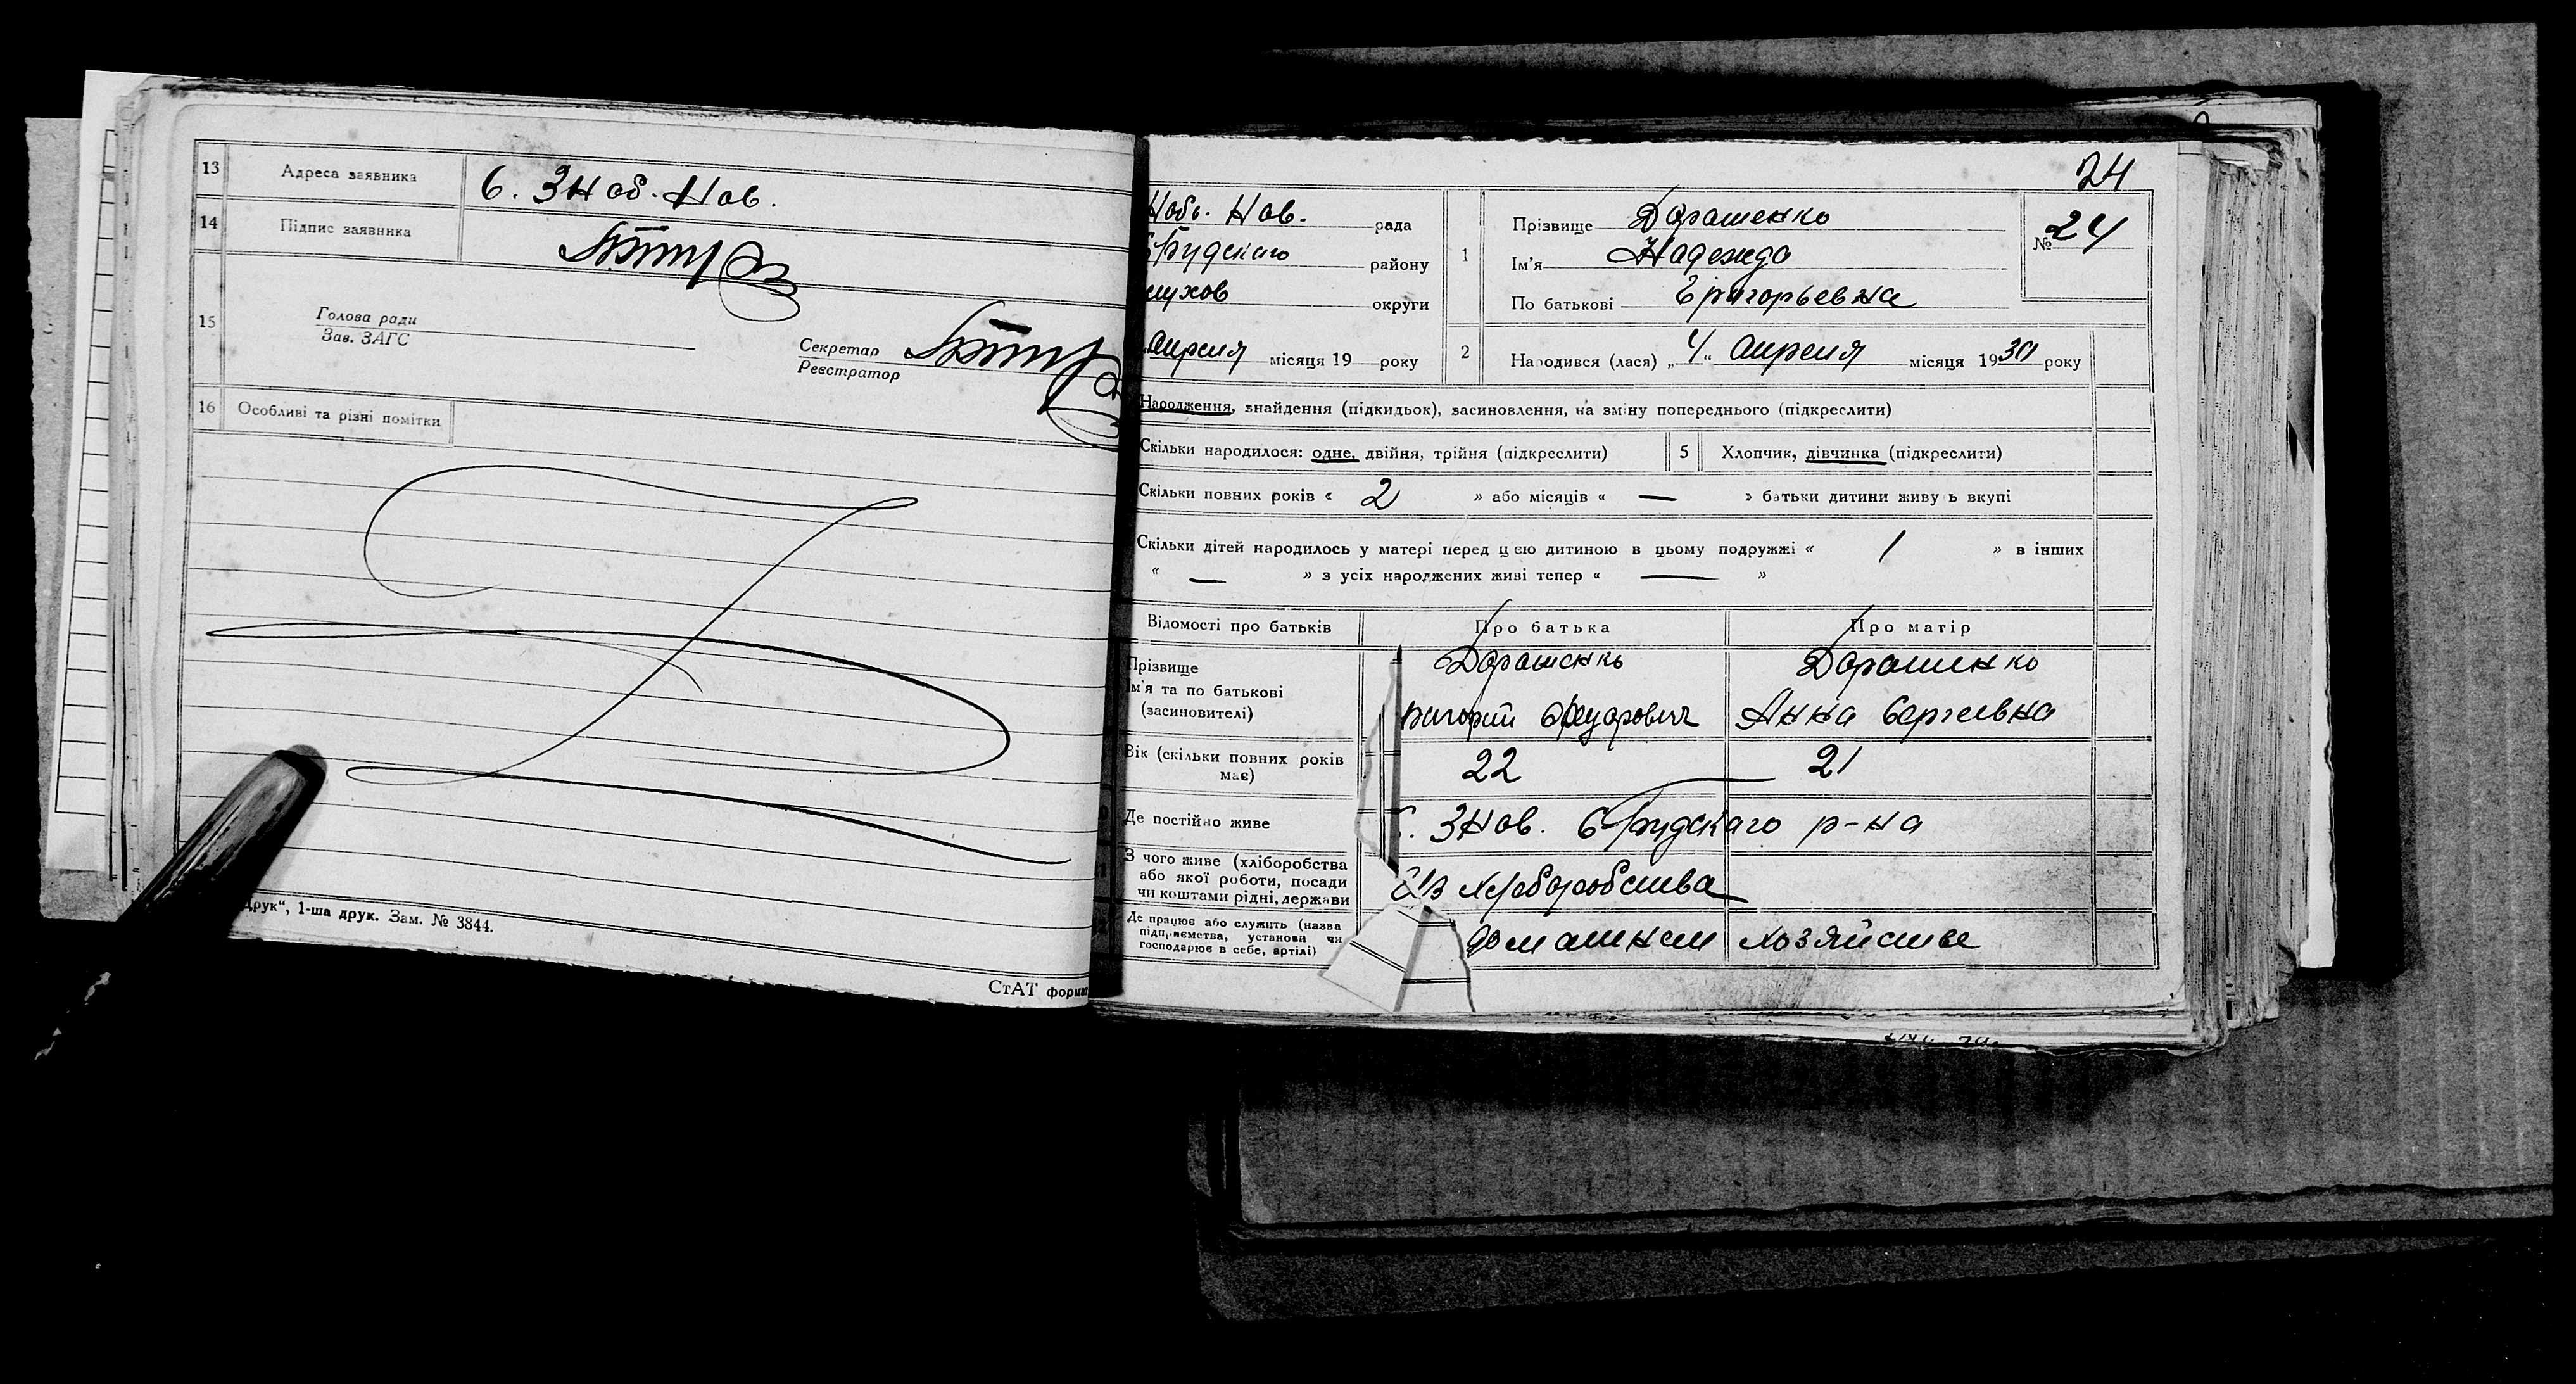 13 Адреса заявника С. Зноб. Нов.
14 Підпис заявника
15 Голова ради
Зав. ЗАГС
Секретар
Реєстратор
16 Особливі та різні помітки
Друк“, 1-ша друк. Зам. № 3844.
СтАТ формат
24
Нобь. Нов. рада
Будскаго району
лухов округи
Апреля місяця 19 року
1 Прізвище Дорошенко
Ім’я Надежда
По батькові Григорьевна
№ 24
2 Народився (лася) „4“ Апреля місяця 1930 року
Народження, знайдення (підкидьок), засиновлення, на зміну попереднього (підкреслити)
Скільки народилося: одне, двійня, трійня (підкреслити) 5 Хлопчик, дівчинка (підкреслити)
Скільки повних років « 2 » або місяців « — » батьки дитини живуть вкупі
Скільки дітей народилось у матері перед цією дитиною в цьому подружжі « 1 » в інших
« — » з усіх народжених живі тепер « — »
Відомості про батьків Про батька Про матір
Прізвище Дорошенко Дорошенко
Ім’я та по батькові
(засиновителі) ригорий Федорович Анна Сергеевна
Вік (скільки повних років
має) 22 21
Де постійно живе С. ЗНов. С Будскаго р-на
З чого живе (хліборобства
або якої роботи, посади
чи коштами рідні, держави Из хлеборобства
Де працює або служить (назва
підприємства, установи чи
господарює в себе, артілі) домашнем хозяйстве